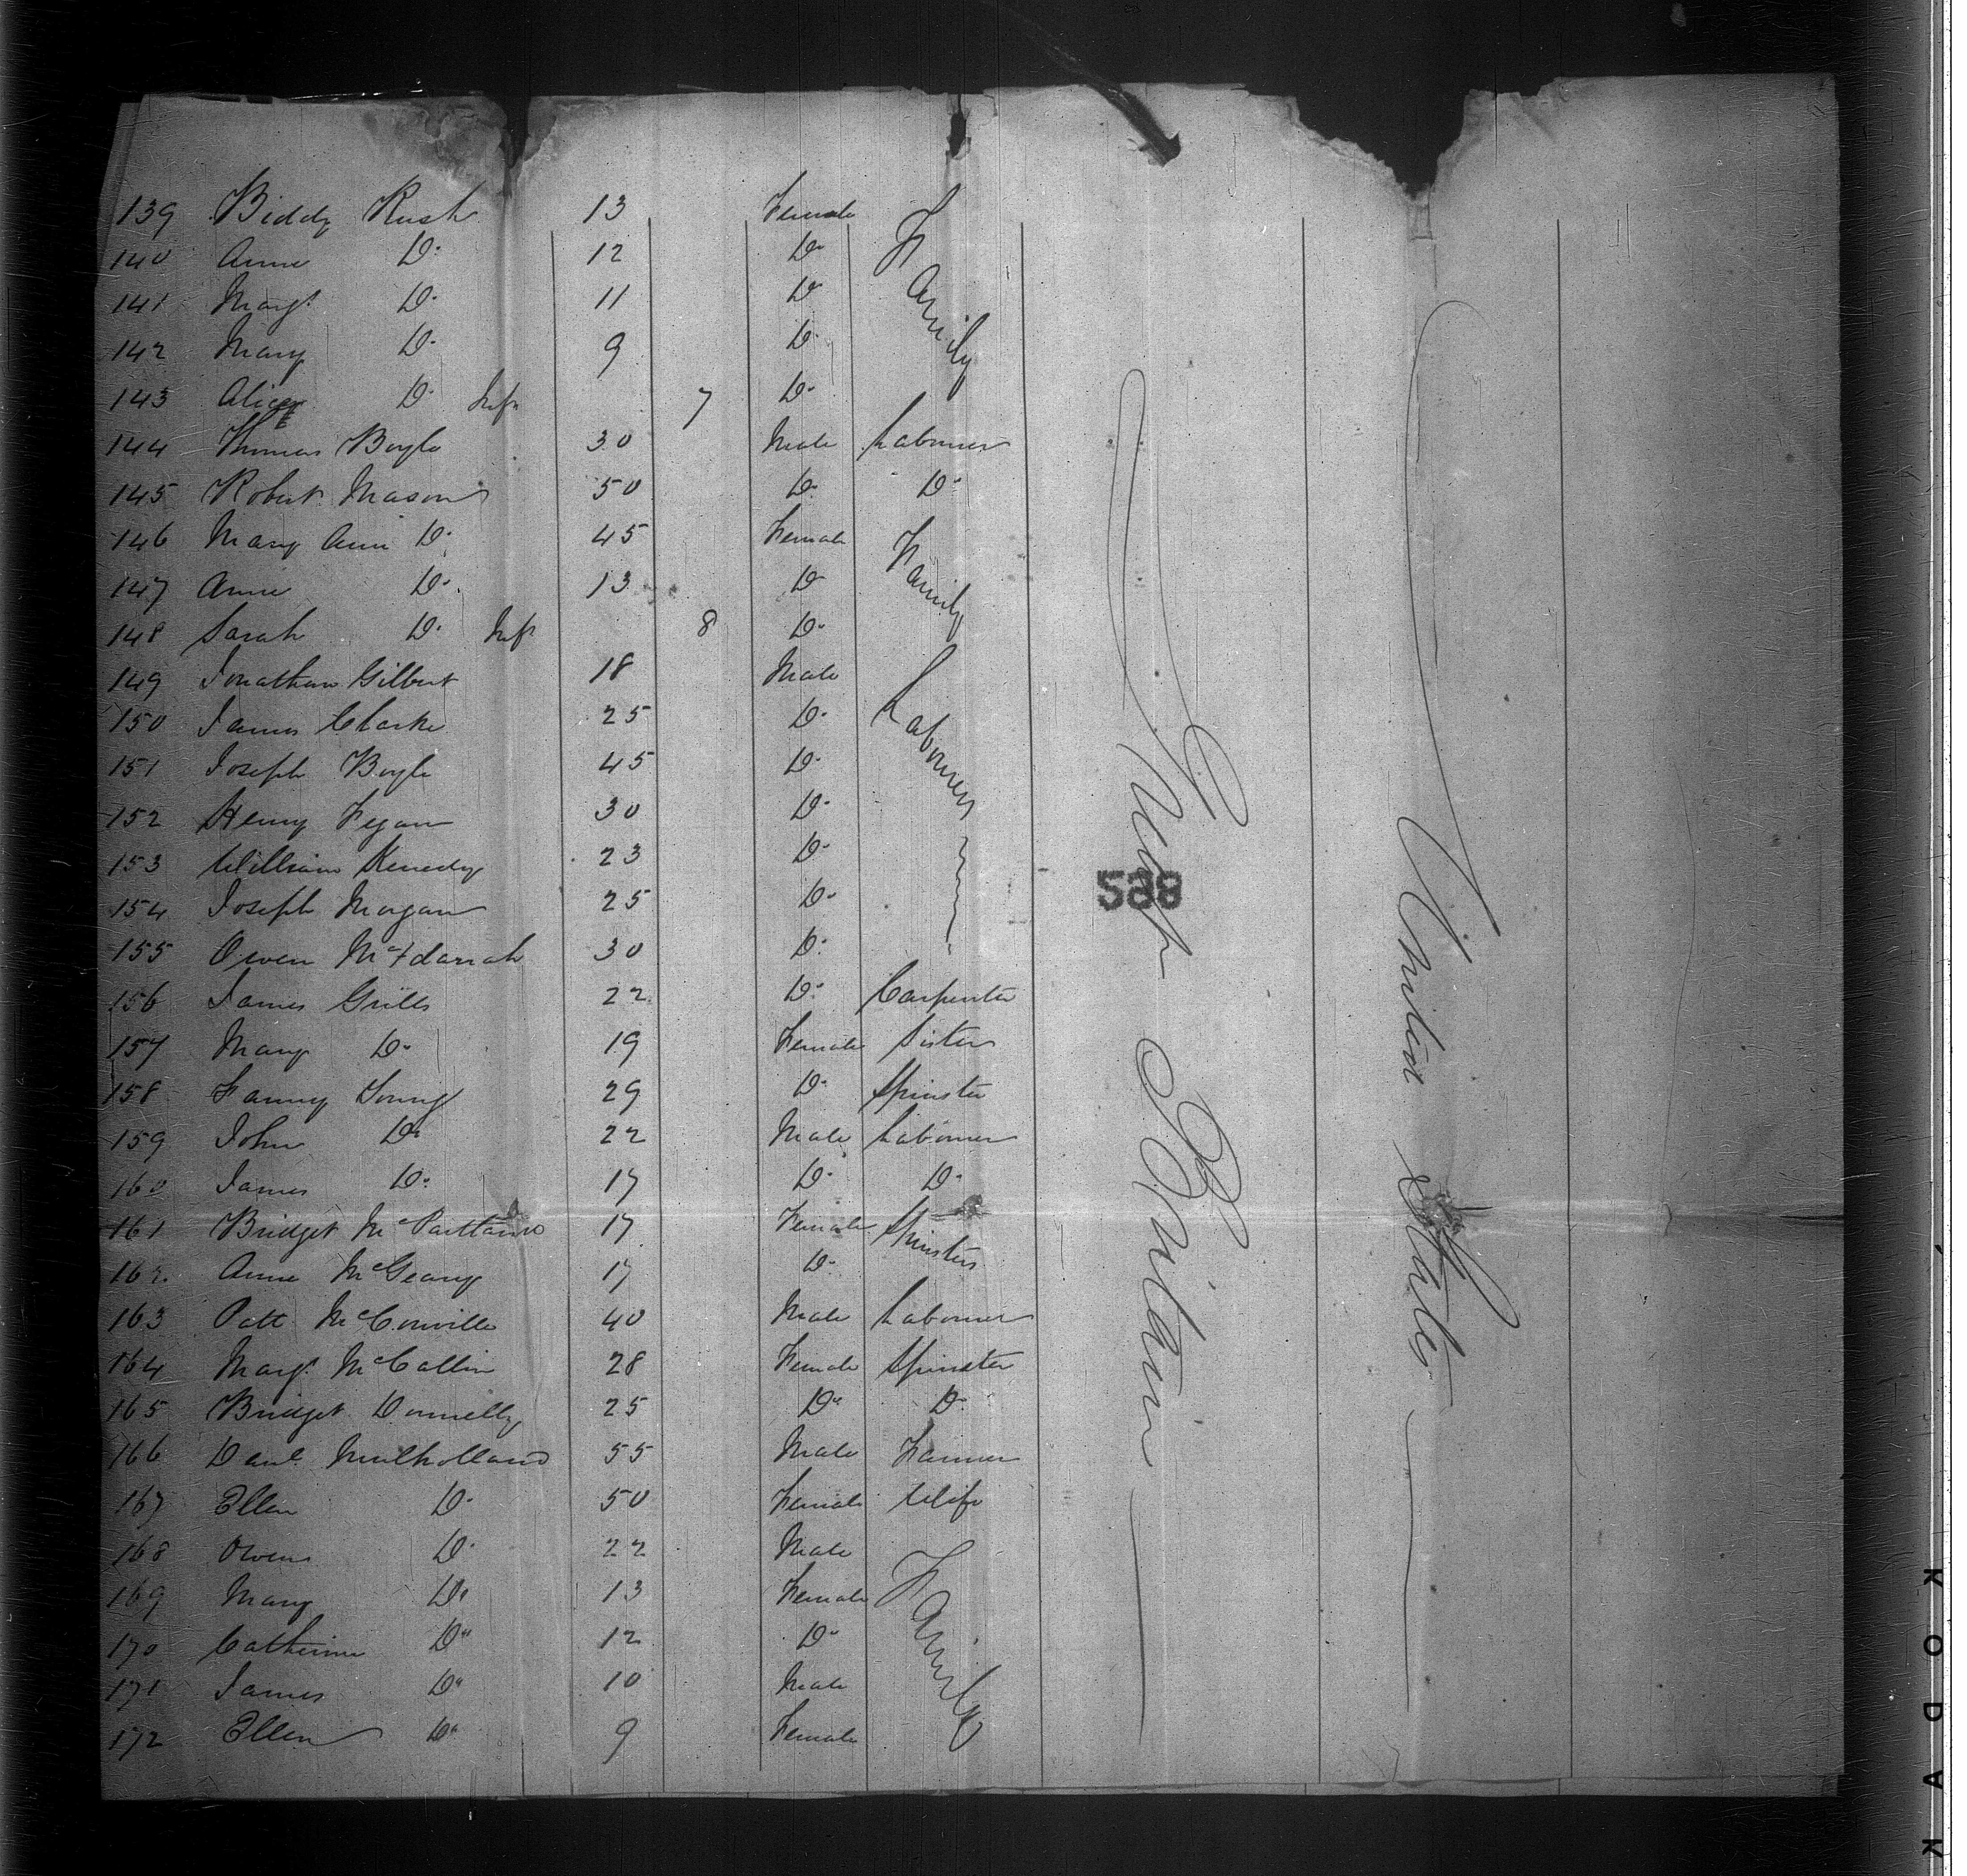 139 Biddy Rush 13 Female
140 Anne Do. 12 Do.
141 Margt. Do. 11 Do.
142 Mary Do. 9 Do.
Family
143 Alice Do. Inft. 7 Do.
144 Thomas Boyle 30 Male Labourer
145 Robert Mason 50 Do. Do.
146 Mary Ann Do. 45 Female
147 Anne Do. 13 Do.
Family
148 Sarah Do. Inft 8 Do.
149 Jonathan Gilbert 18 Male
150 James Clarke 25 Do.
151 Joseph Boyle 45 Do.
Labourers
152 Henry Fegan 30 Do.
153 William Kenedy 23 Do.
154 Joseph Morgan 25 Do.
155 Owen 30 Do.
156 James Grills 22 Do. Carpenter
157 Mary Do. 19 Female Sister
158 Fanny Young 29 Do. Spinster
159 John Do. 22 Male Labourer
160 James Do. 17 Do. Do.
161 Bridget McPartland 17 Female
162 Anne McGeany 17 Do.
Spinsters
163 Patt McConville 40 Male Labourer
164 Margt. McCallin 28 Female Spinster
165 Bridget Donnelly 25 Do. Do.
166 Danl. Mulholland 55 Male Farmer
167 Ellen Do. 50 Female Wife
168 Owen Do. 22 Male
169 Mary Do. 13 Female
170 Catherine Do. 12 Do.
171 James Do. 10 Male
172 Ellen Do. 9 Female
Family
Great Britain
United States
588
KODAK